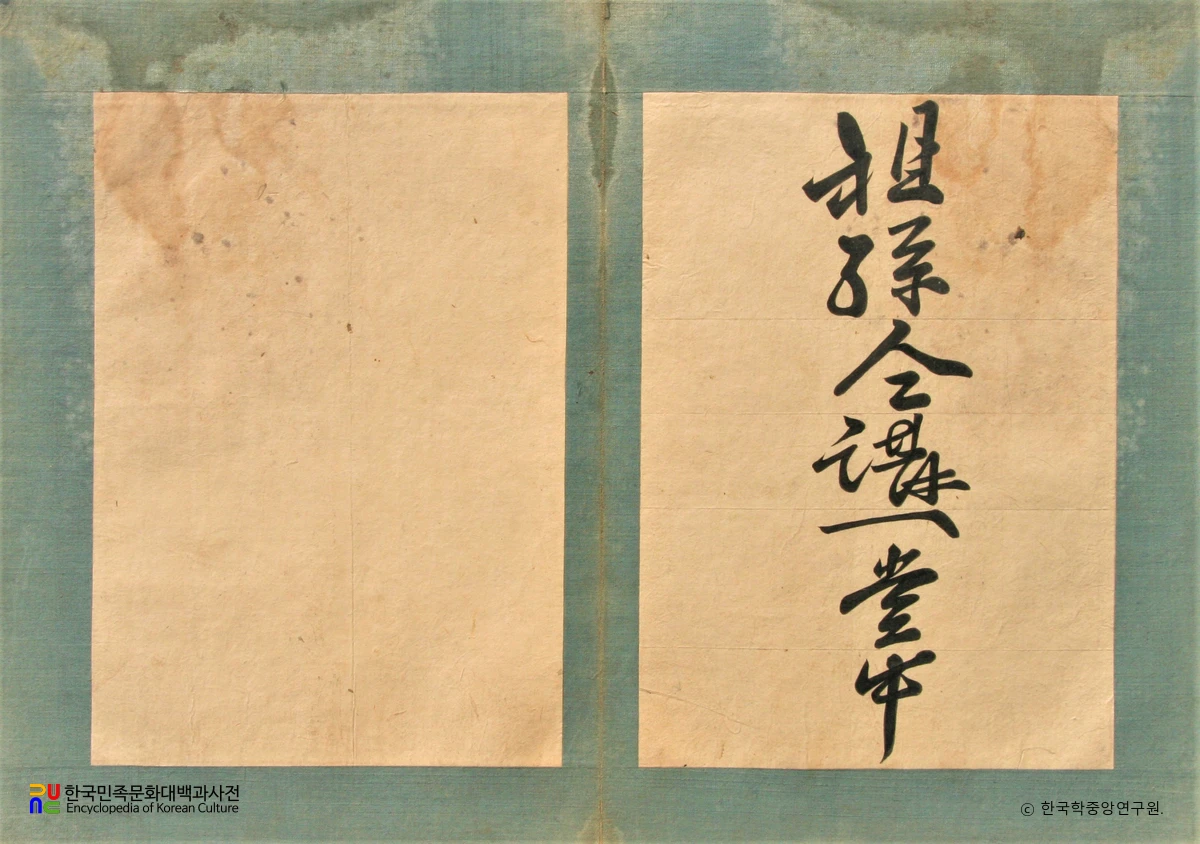 祖孫仝講一堂中
한국민족문화대백과사전
Encyclopedia of Korean Culture
ⓒ 한국학중앙연구원.